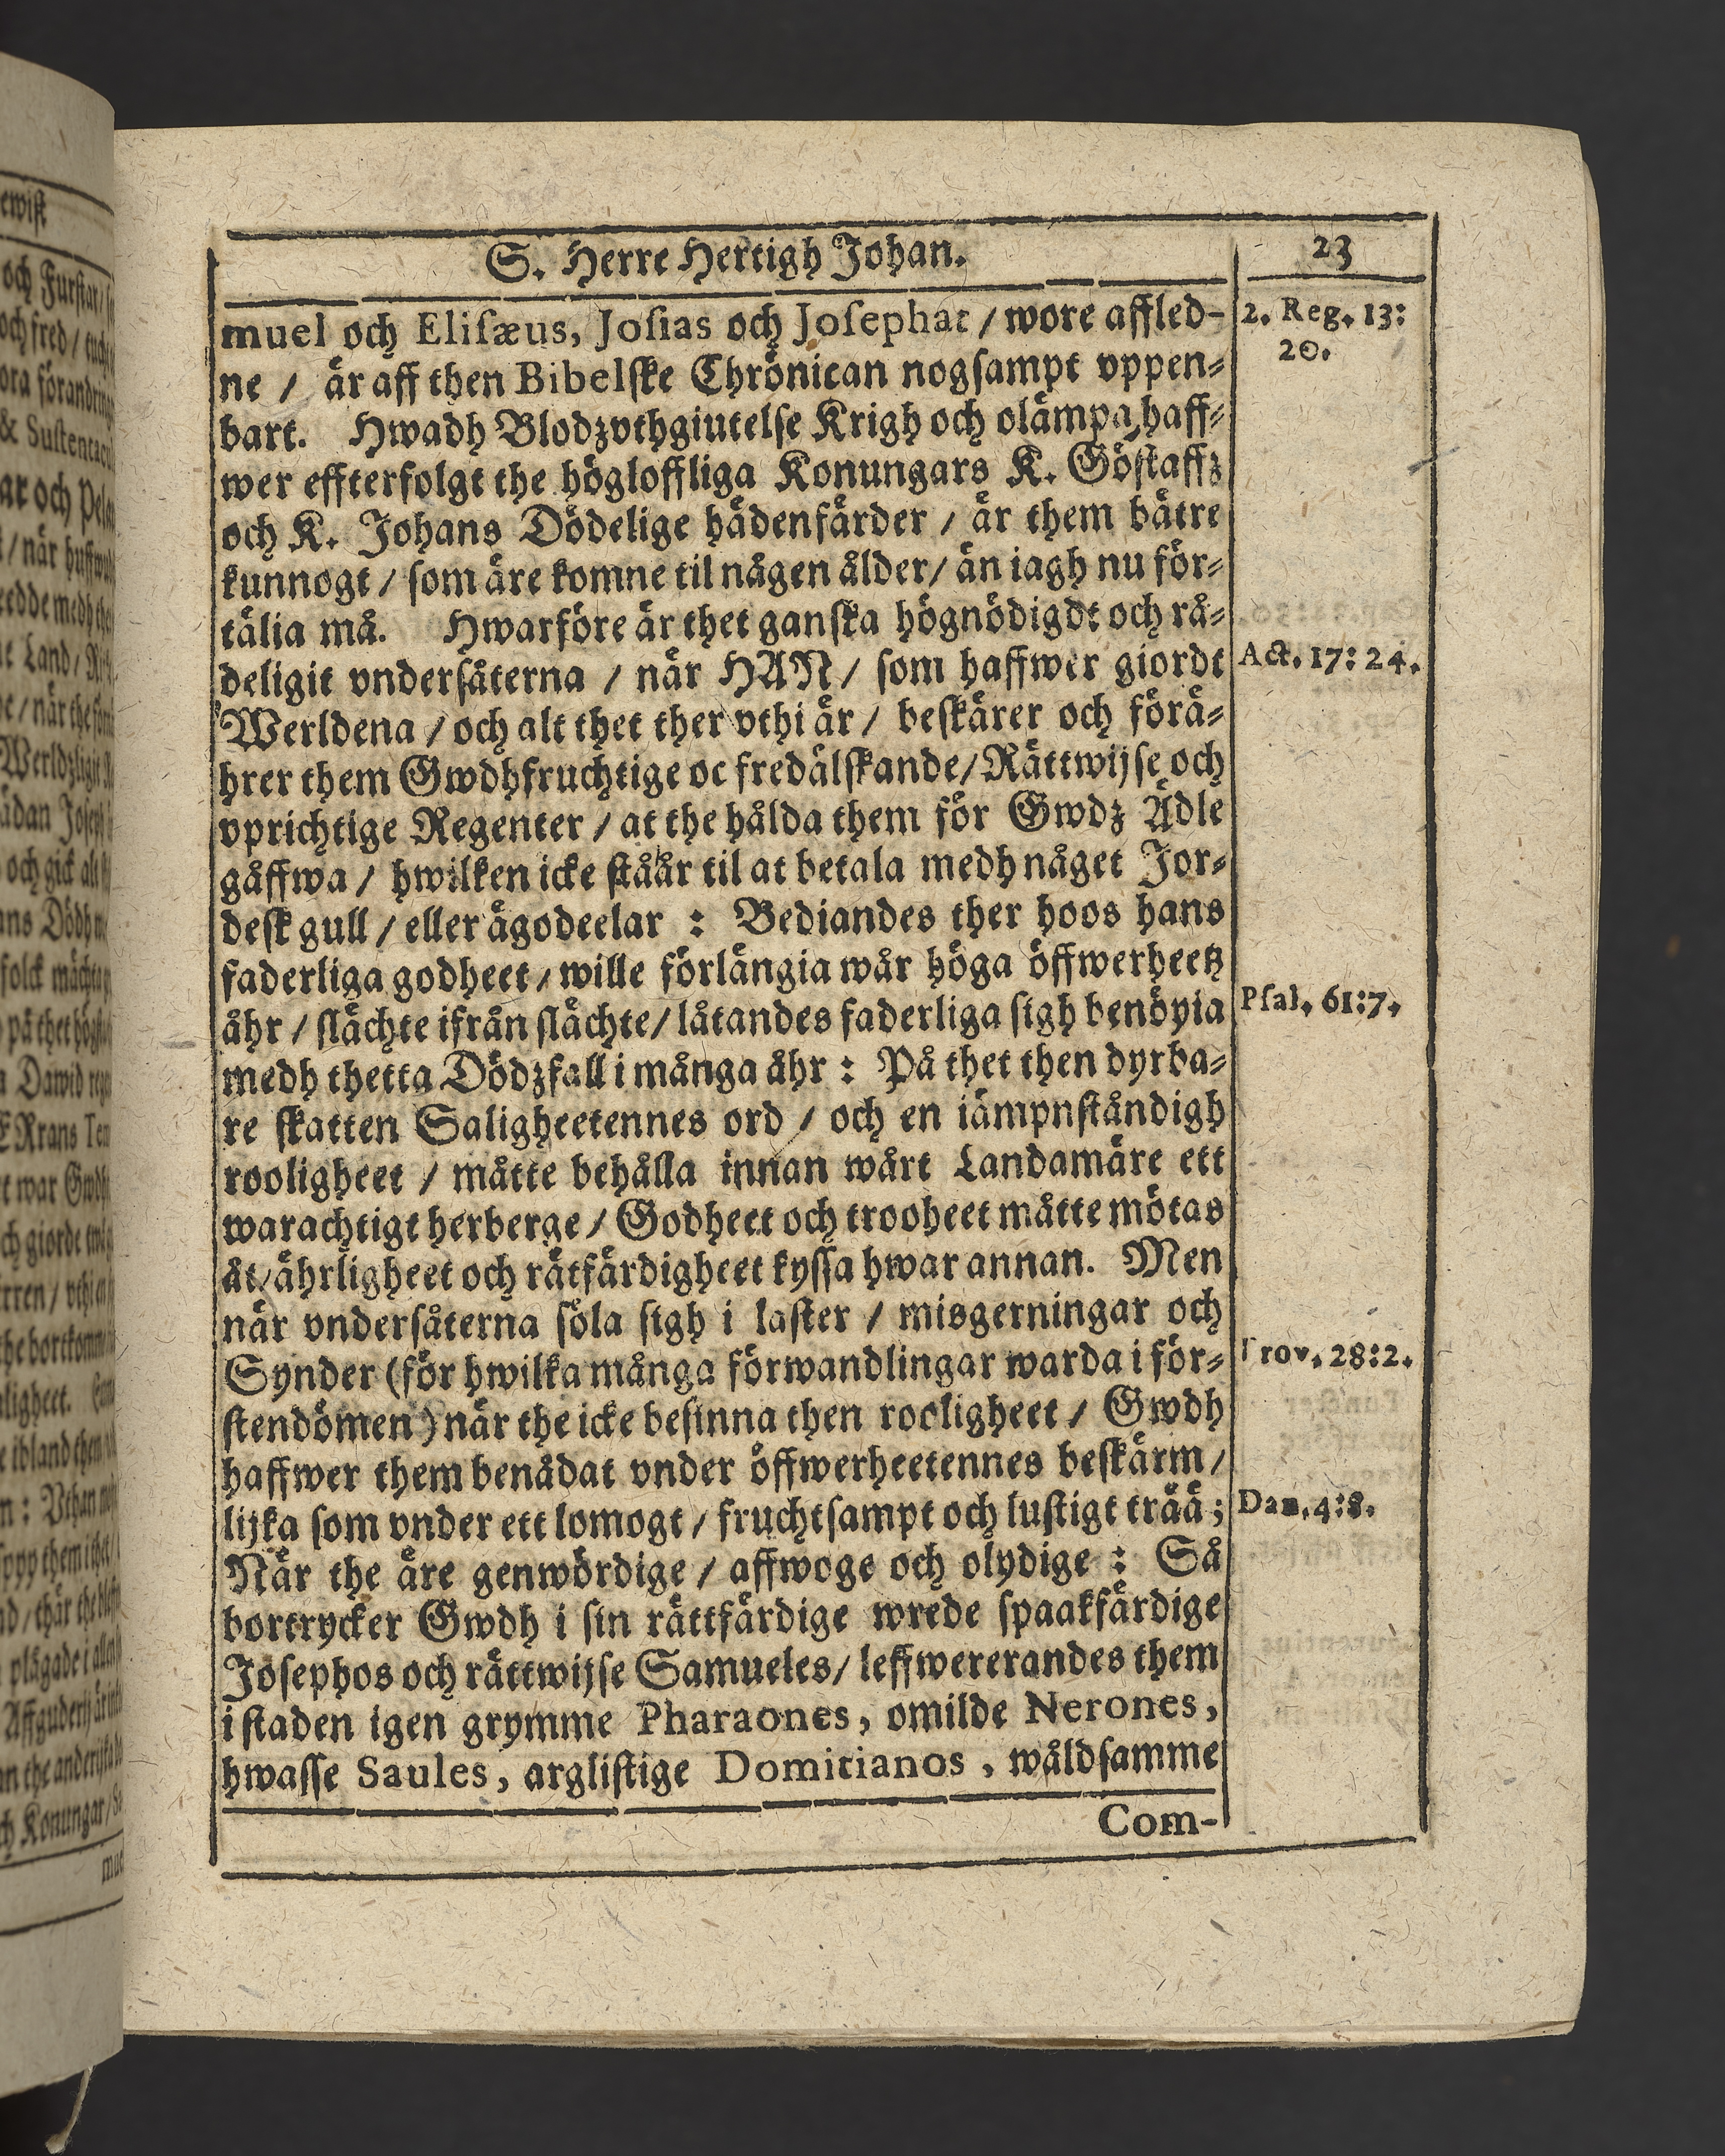 S. Herre Hertigh Johan.
23
muel och Eliſæus, Joſias och Joſephat / wore affled-
ne / är aff then Bibelſke Chrönican nogſampt vppen-
bart. Hwadh Blodzvthgiutelſe Krigh och olämpa haff-
wer effterfolgt the högloffliga Konungars K. Göſtaffz
och K. Johans Dödelige hädenfärder / är them bätre
kunnogt / ſom äre komne til någen ålder / än iagh nu för-
tälia må. Hwarföre är thet ganſka högnödigdt och rå-
deligit vnderſåterna / när HAN / ſom haffwer giordt
Werldena / och alt thet ther vthi är / beſkärer och förä-
hrer them Gwdhfruchtige oc fredälſkande / Rättwijſe och
vprichtige Regenter / at the hålda them för Gwdz Ädle
gåffwa / hwilken icke ståår til at betala medh någet Jor-
deſk gull / eller ägodeelar : Bediandes ther hoos hans
faderliga godheet / wille förlängia wår höga öffwerheetz
åhr / ſlächte ifrån ſlächte / låtandes faderliga ſigh benöyia
medh thetta Dödzfall i många åhr : På thet then dyrba-
re ſkatten Saligheetennes ord / och en iämpnſtändigh
rooligheet / måtte behålla innan wårt Landamäre ett
warachtigt herberge / Godheet och trooheet måtte mötas
åt / ährligheet och rätfärdigheet kyſſa hwar annan. Men
när vnderſåterna ſöla ſigh i laſter / misgerningar och
Synder (för hwilka många förwandlingar warda i för-
ſtendömen) när the icke beſinna then rooligheet / Gwdh
haffwer them benådat vnder öffwerheetennes beſkärm /
lijka ſom vnder ett lomogt / fruchtſampt och luſtigt trää ;
När the äre genwördige / affwoge och olydige : Så
bortrycker Gwdh i ſin rättfärdige wrede ſpaakfärdige
Joſephos och rättwijſe Samueles / leffwererandes them
i ſtaden igen grymme Pharaones, omilde Nerones,
hwaſſe Saules, argliſtige Domitianos, wåldſamme
Com-
2. Reg. 13:
20.
Act. 17: 24.
Pſal. 61:7.
rov. 28:2.
Dan. 4:8.